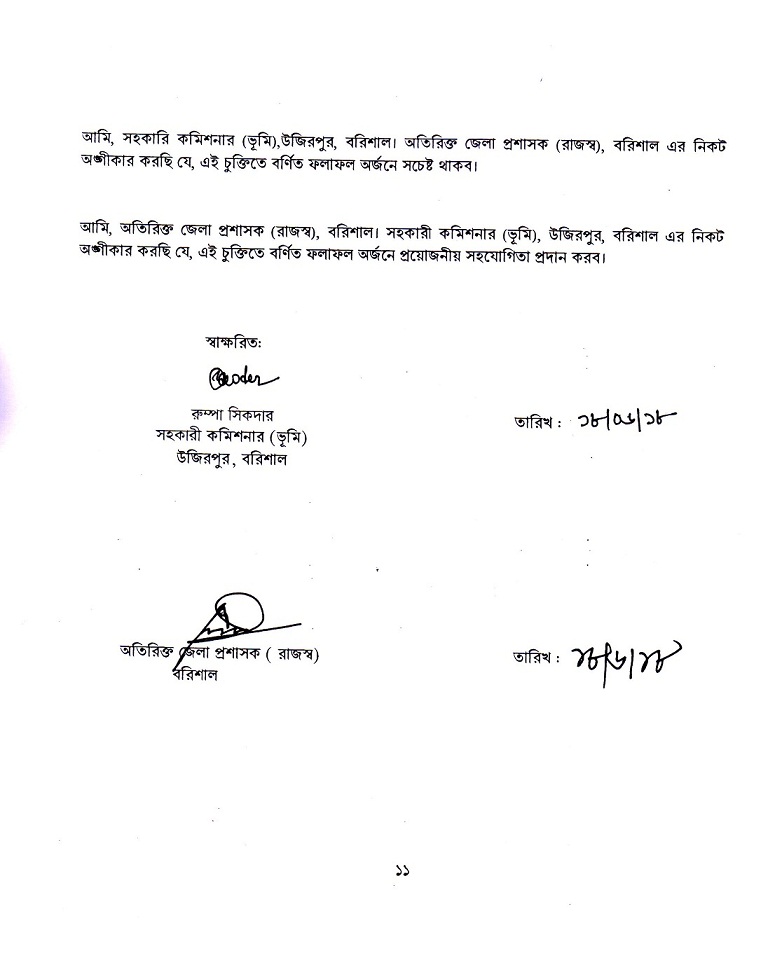 আমি, সহকারি কমিশনার (ভূমি),উজিরপুর, বরিশাল। অতিরিক্ত জেলা প্রশাসক (রাজস্ব), বরিশাল এর নিকট
অঙ্গীকার করছি যে, এই চুক্তিতে বর্ণিত ফলাফল অর্জনে সচেষ্ট থাকব।
আমি, অতিরিক্ত জেলা প্রশাসক (রাজস্ব), বরিশাল। সহকারী কমিশনার (ভূমি), উজিরপুর, বরিশাল এর নিকট
অঙ্গীকার করছি যে, এই চুক্তিতে বর্ণিত ফলাফল অর্জনে প্রয়োজনীয় সহযোগিতা প্রদান করব।
স্বাক্ষরিত:
রুম্পা সিকদার
সহকারী কমিশনার (ভূমি)
উজিরপুর, বরিশাল
তারিখ : ১৮/০৬/১৮
অতিরিক্ত জেলা প্রশাসক ( রাজস্ব)
বরিশাল
তারিখ : ১৮/৬/১৮
১১